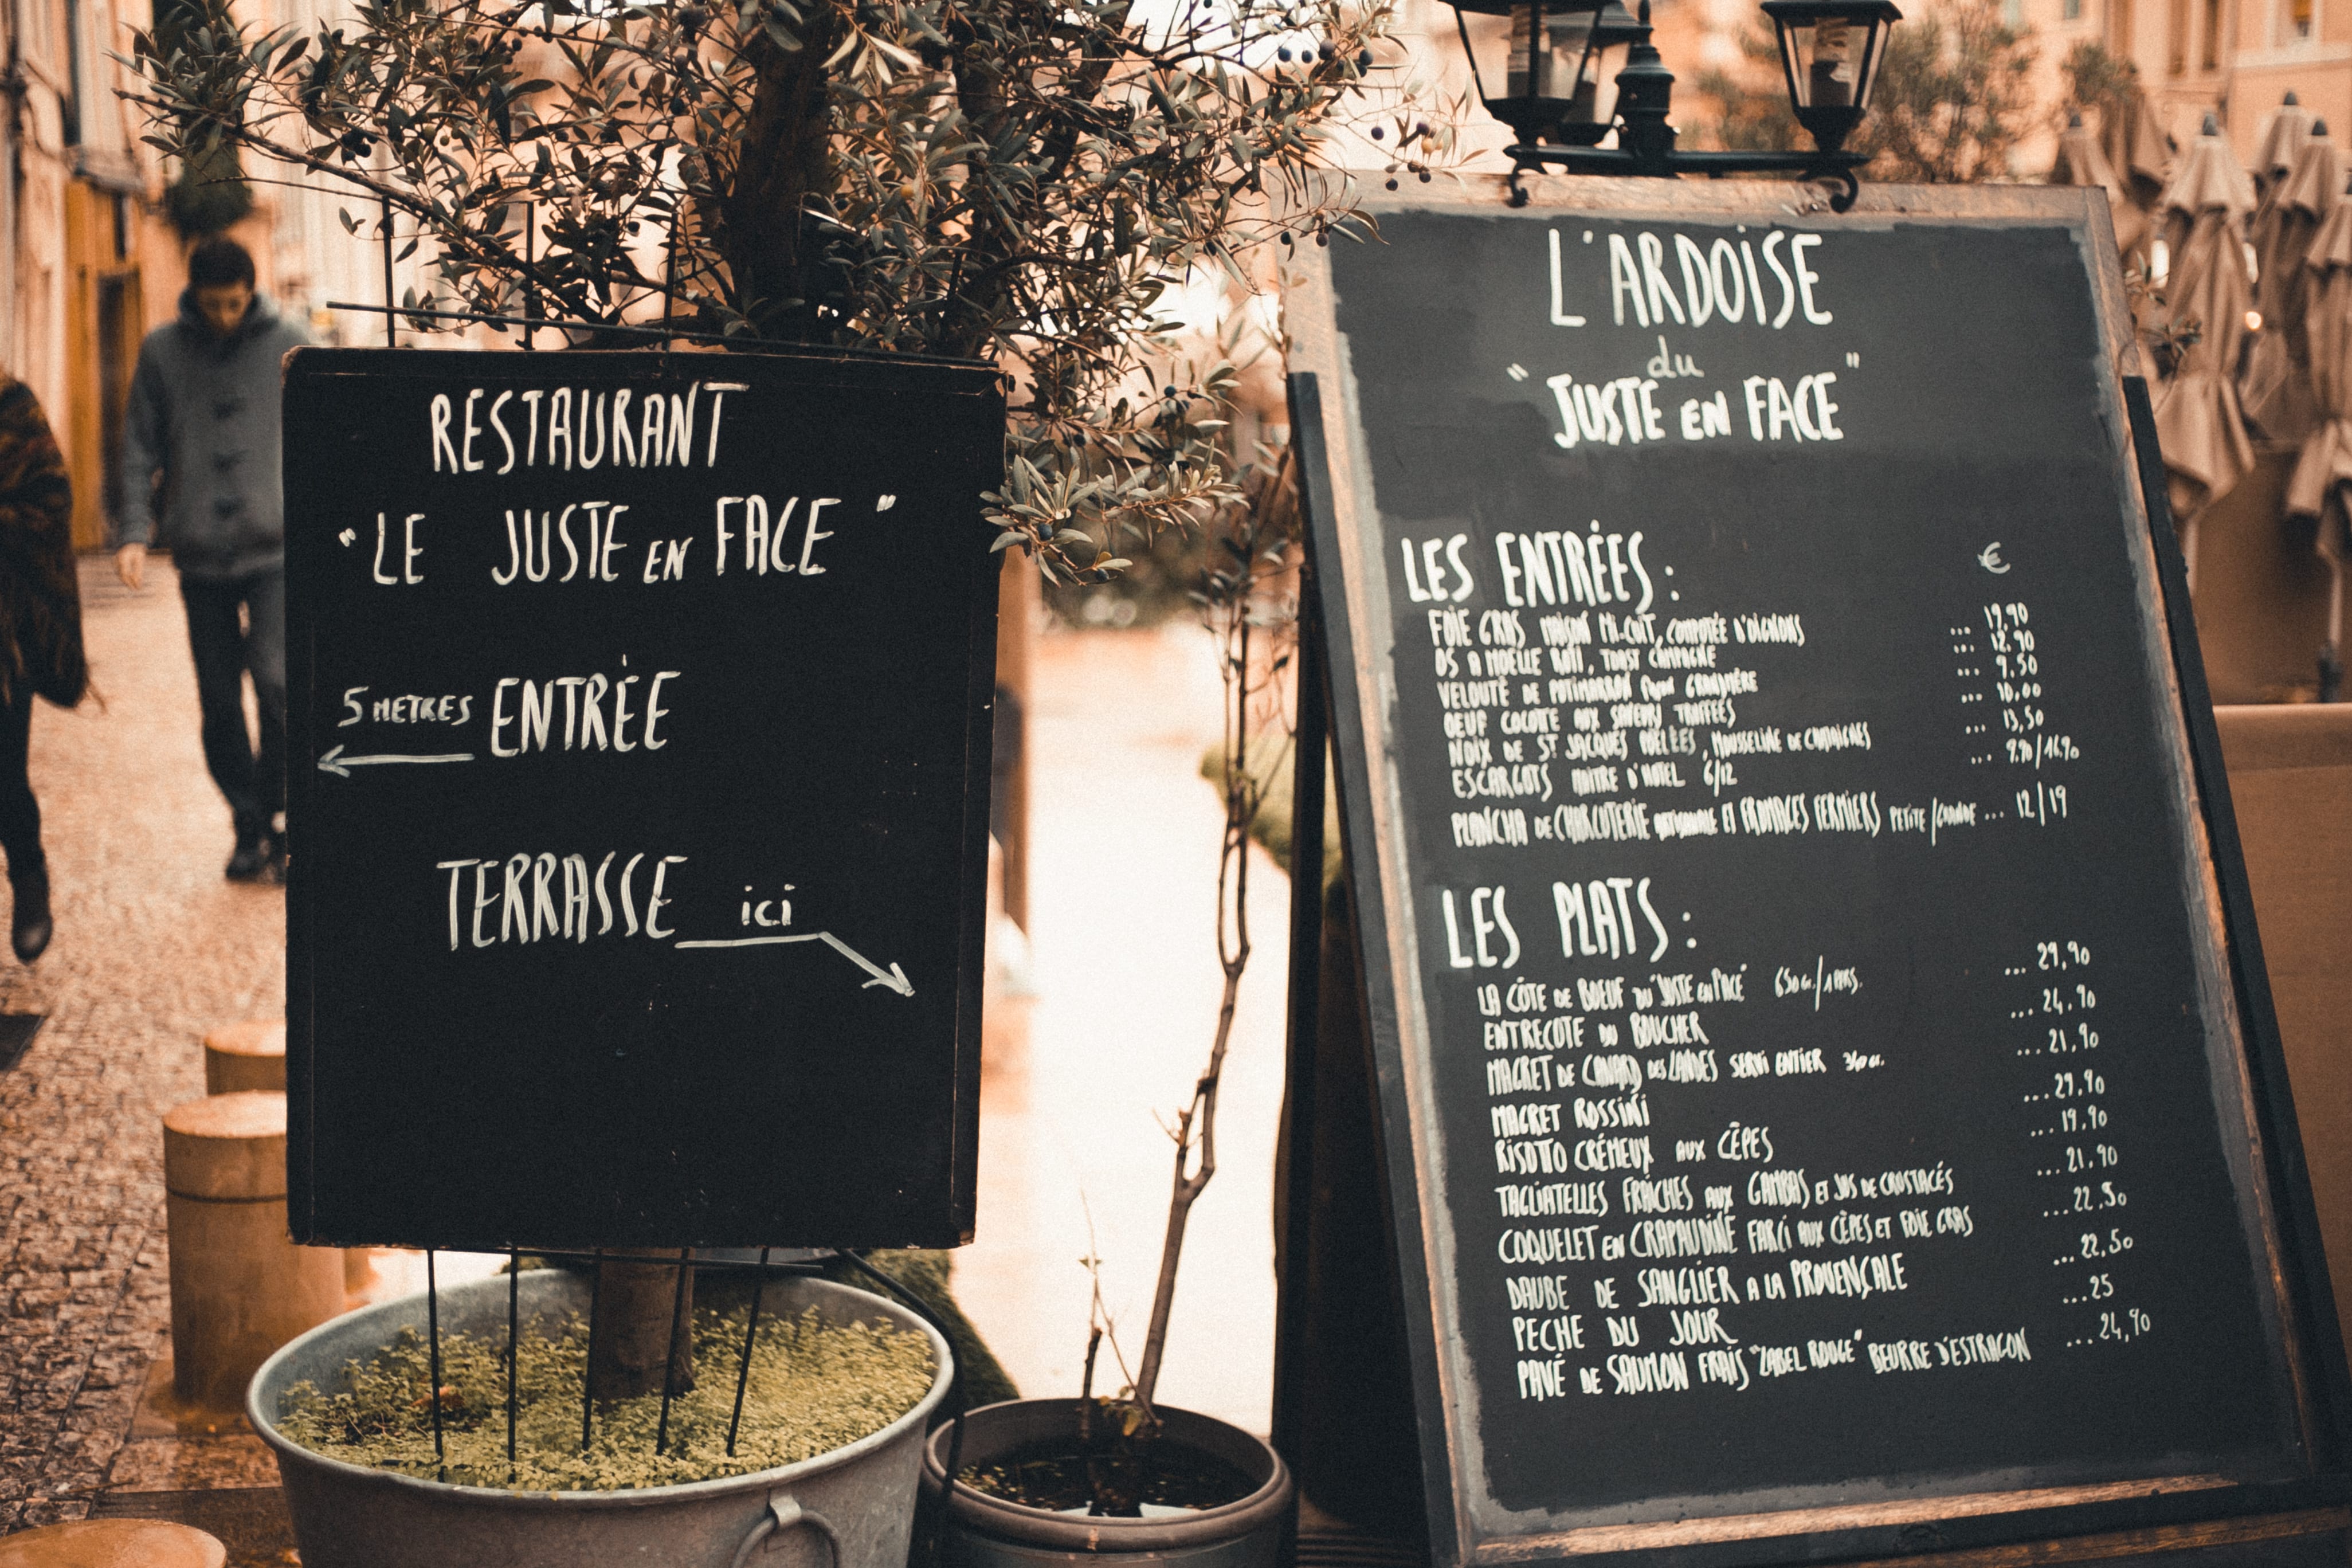 RESTAURANT
"LE JUSTE EN FACE"
5 METRES ENTRÉE
TERRASSE ici
L'ARDOISE
du
"JUSTE EN FACE"
LES ENTRÉES : €
FOIE GRAS MAISON MI-CUIT, COMPOTÉE D'OIGNONS ... 19,90
OS A MOELLE ROTI, TOAST CAMPAGNE ... 12,90
VELOUTÉ DE POTIMARRON FAÇON GRANDMÈRE ... 9,50
OEUF COCOTE AUX SAVEURS TRUFFÉES ... 10,00
NOIX DE ST JACQUES POÊLÉES, MOUSSELINE DE ... 13,50
ESCARGOTS MAITRE D'HOTEL 6/12 ... 9,90/16,90
PLANCHA DE CHARCUTERIE ARTISANALE ET FROMAGES FERMIERS PETITE/GRANDE ... 12/19
LES PLATS :
LA CÔTE DE BOEUF DU "JUSTE EN FACE" 650 GR./1 PERS. ... 29,90
ENTRECOTE DU BOUCHER ... 24,90
MAGRET DE CANARD DES LANDES SERVI ENTIER GR. ... 21,90
MAGRET ROSSINI ... 29,90
RISOTTO CRÉMEUX AUX CÊPES ... 19,90
TAGLIATELLES FRAICHES AUX GAMBAS ET JUS DE CRUSTACÉS ... 21,90
COQUELET EN CRAPAUDINE FARCI AUX CÊPES ET FOIE GRAS ... 22,50
DAUBE DE SANGLIER A LA PROVENÇALE ... 22,50
PECHE DU JOUR ... 25
PAVÉ DE SAUMON FRAIS "LABEL ROUGE" BEURRE D'ESTRAGON ... 24,90